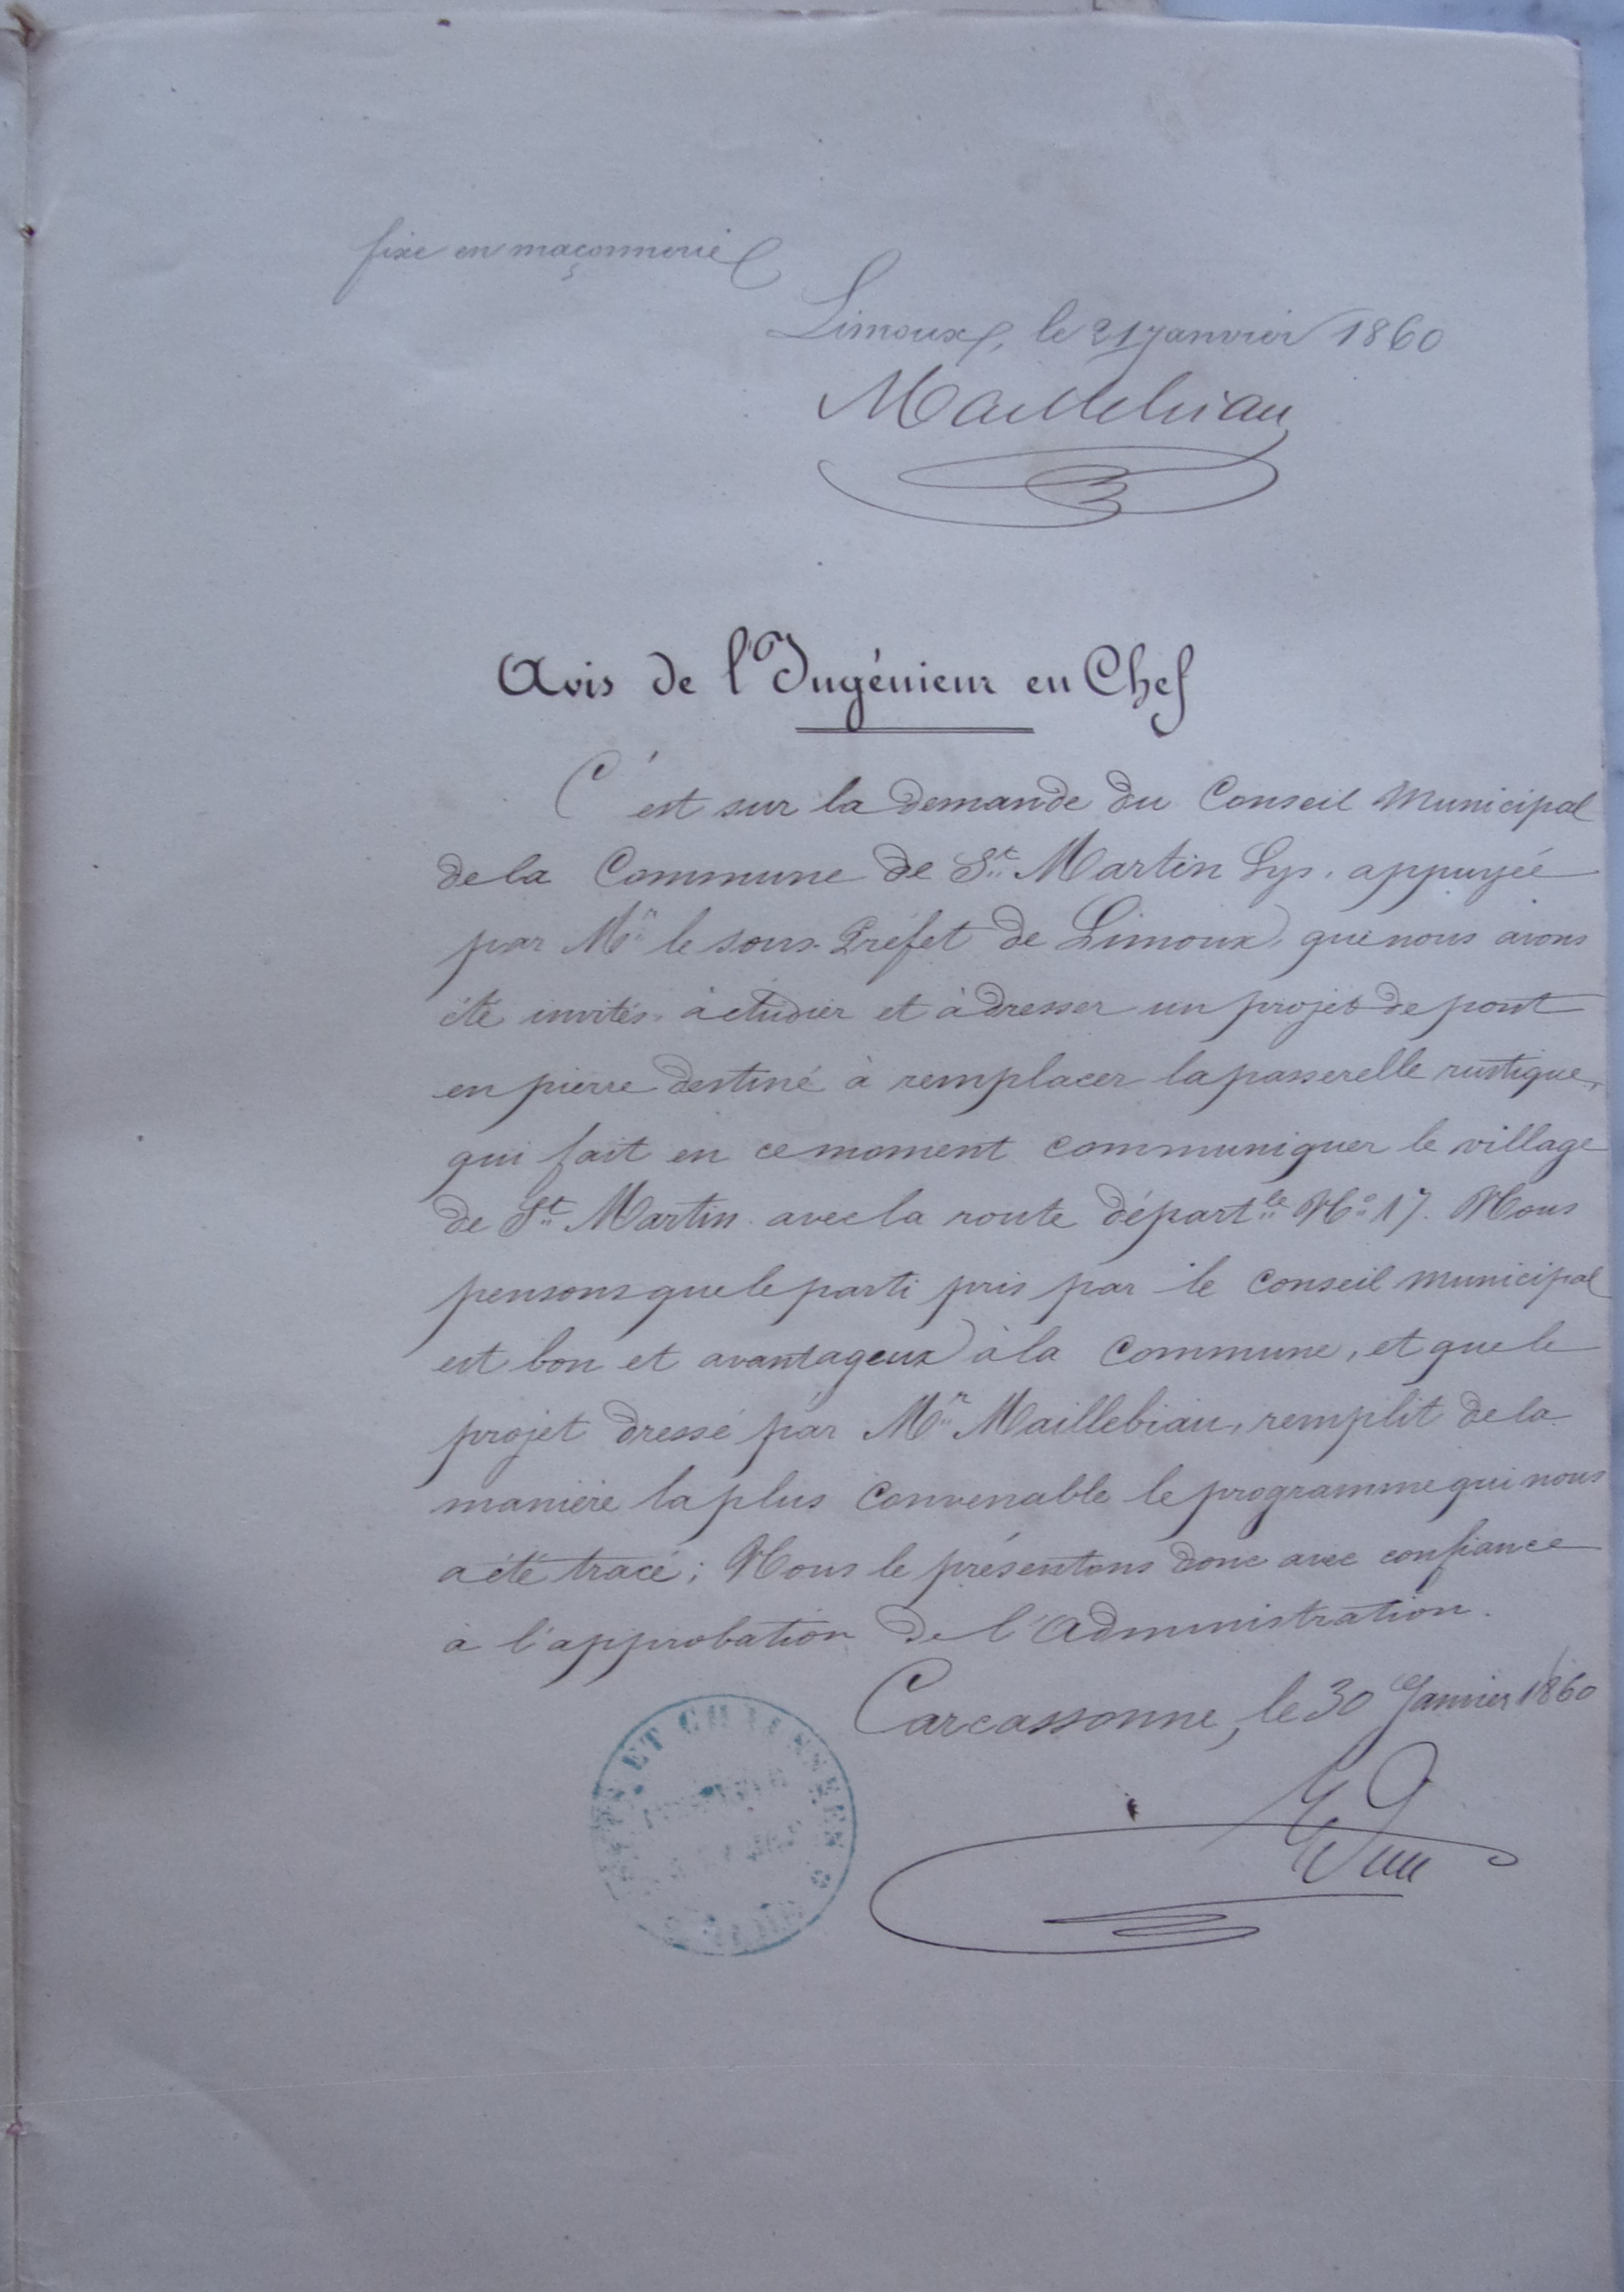 fixe en maçonnerie
Limoux, le 21 janvier 1860
Maillebiau
Avis de l'Ingénieur en Chef
C'est sur la demande du Conseil Municipal
de la Commune de St. Martin Lys, appuyée
par Mr. le sous-Préfet de Limoux, que nous avons
été invités à étudier et à dresser un projet de pont
en pierre destiné à remplacer la passerelle rustique,
qui fait en ce moment communiquer le village
de St. Martin avec la route départle. No 17. Nous
pensons que le parti pris par le Conseil municipal
est bon et avantageux à la Commune, et que le
projet dressé par Mr. Maillebiau, remplit de la
manière la plus convenable le programme qui nous
a été tracé; Nous le présentons donc avec confiance
à l'approbation de l'Administration.
Carcassonne, le 30 Janvier 1860
ET CHAUSSÉES